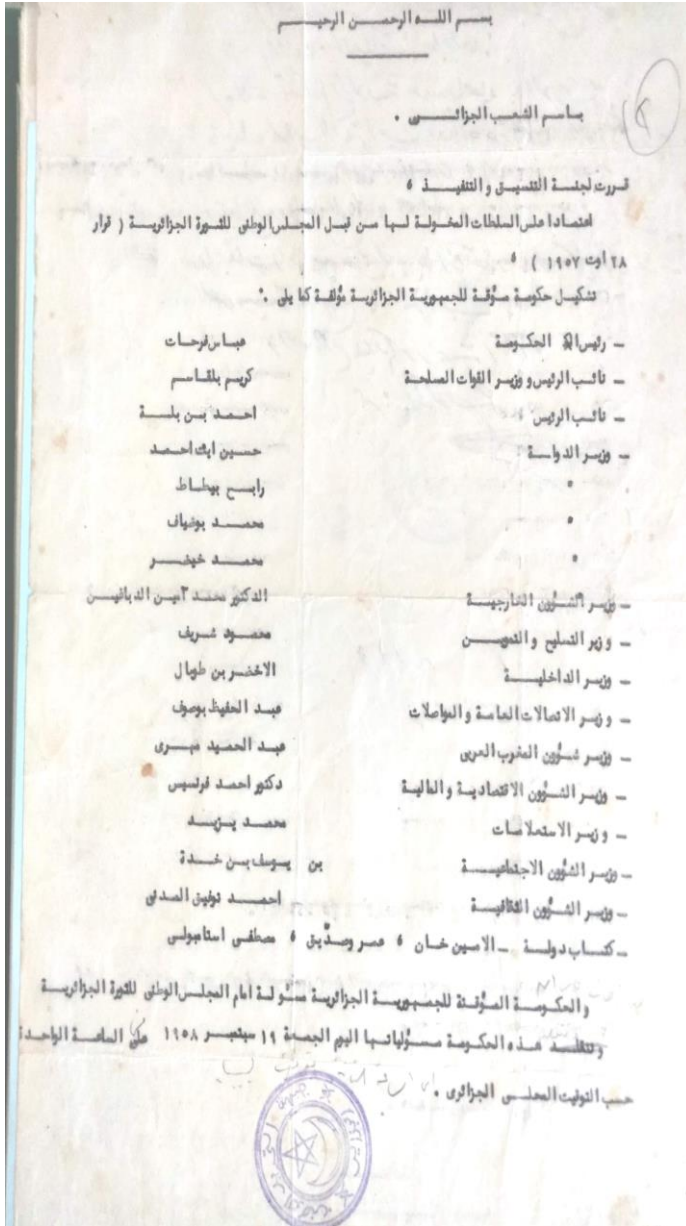 بسم الله الرحمن الرحيم
باسم الشعب الجزائري .
قررت لجنة التنسيق و التنفيذ ،
اعتمادا على السلطات المخولة لها من قبل المجلس الوطنى للثورة الجزائرية ( قرار
٢٨ اوت ١٩٥٧ ) ،
تشكيل حكومة مؤقة للجمهورية الجزائرية مؤلفة كما يلى :
ـ رئيس الحكومة عباس فرحات
ـ نائب الرئيس و وزير القوات المسلحة كريم بلقاسم
ـ نائب الرئيس احمد بن بلة
ـ وزير الدولة حسين ايت احمد
" رابح بيطاط
" محمد بوضياف
" محمد خيضر
ـ وزير الشؤون الخارجية الدكتور محمد لمين الدباغين
ـ وزير التسليح و التموين محمود شريف
ـ وزير الداخلية الاخضر بن طوبال
ـ وزير الاتصالات العامة و المواصلات عبد الحفيظ بوصوف
ـ وزير شؤون المغرب العربى عبد الحميد مهرى
ـ وزير الشؤون الاقتصادية و المالية دكتور احمد فرنسيس
ـ وزير الاستعلامات محمد يزيد
ـ وزير الشؤون الاجتماعية بن يوسف بن خدة
ـ وزير الشؤون الثقافية احمد توفيق المدنى
ـ كتاب دولة ـ الامين خان ، عمر وصديق ، مصطفى اسطامبولى
و الحكومة المؤقتة للجمهورية الجزائرية مسئولة امام المجلس الوطنى للثورة الجزائرية
و تتقلد هذه الحكومة مسؤلياتها اليوم الجمعة ١٩ سبتمبر ١٩٥٨ على الساعة الواحدة
حسب التوقيت المحلى الجزائرى .